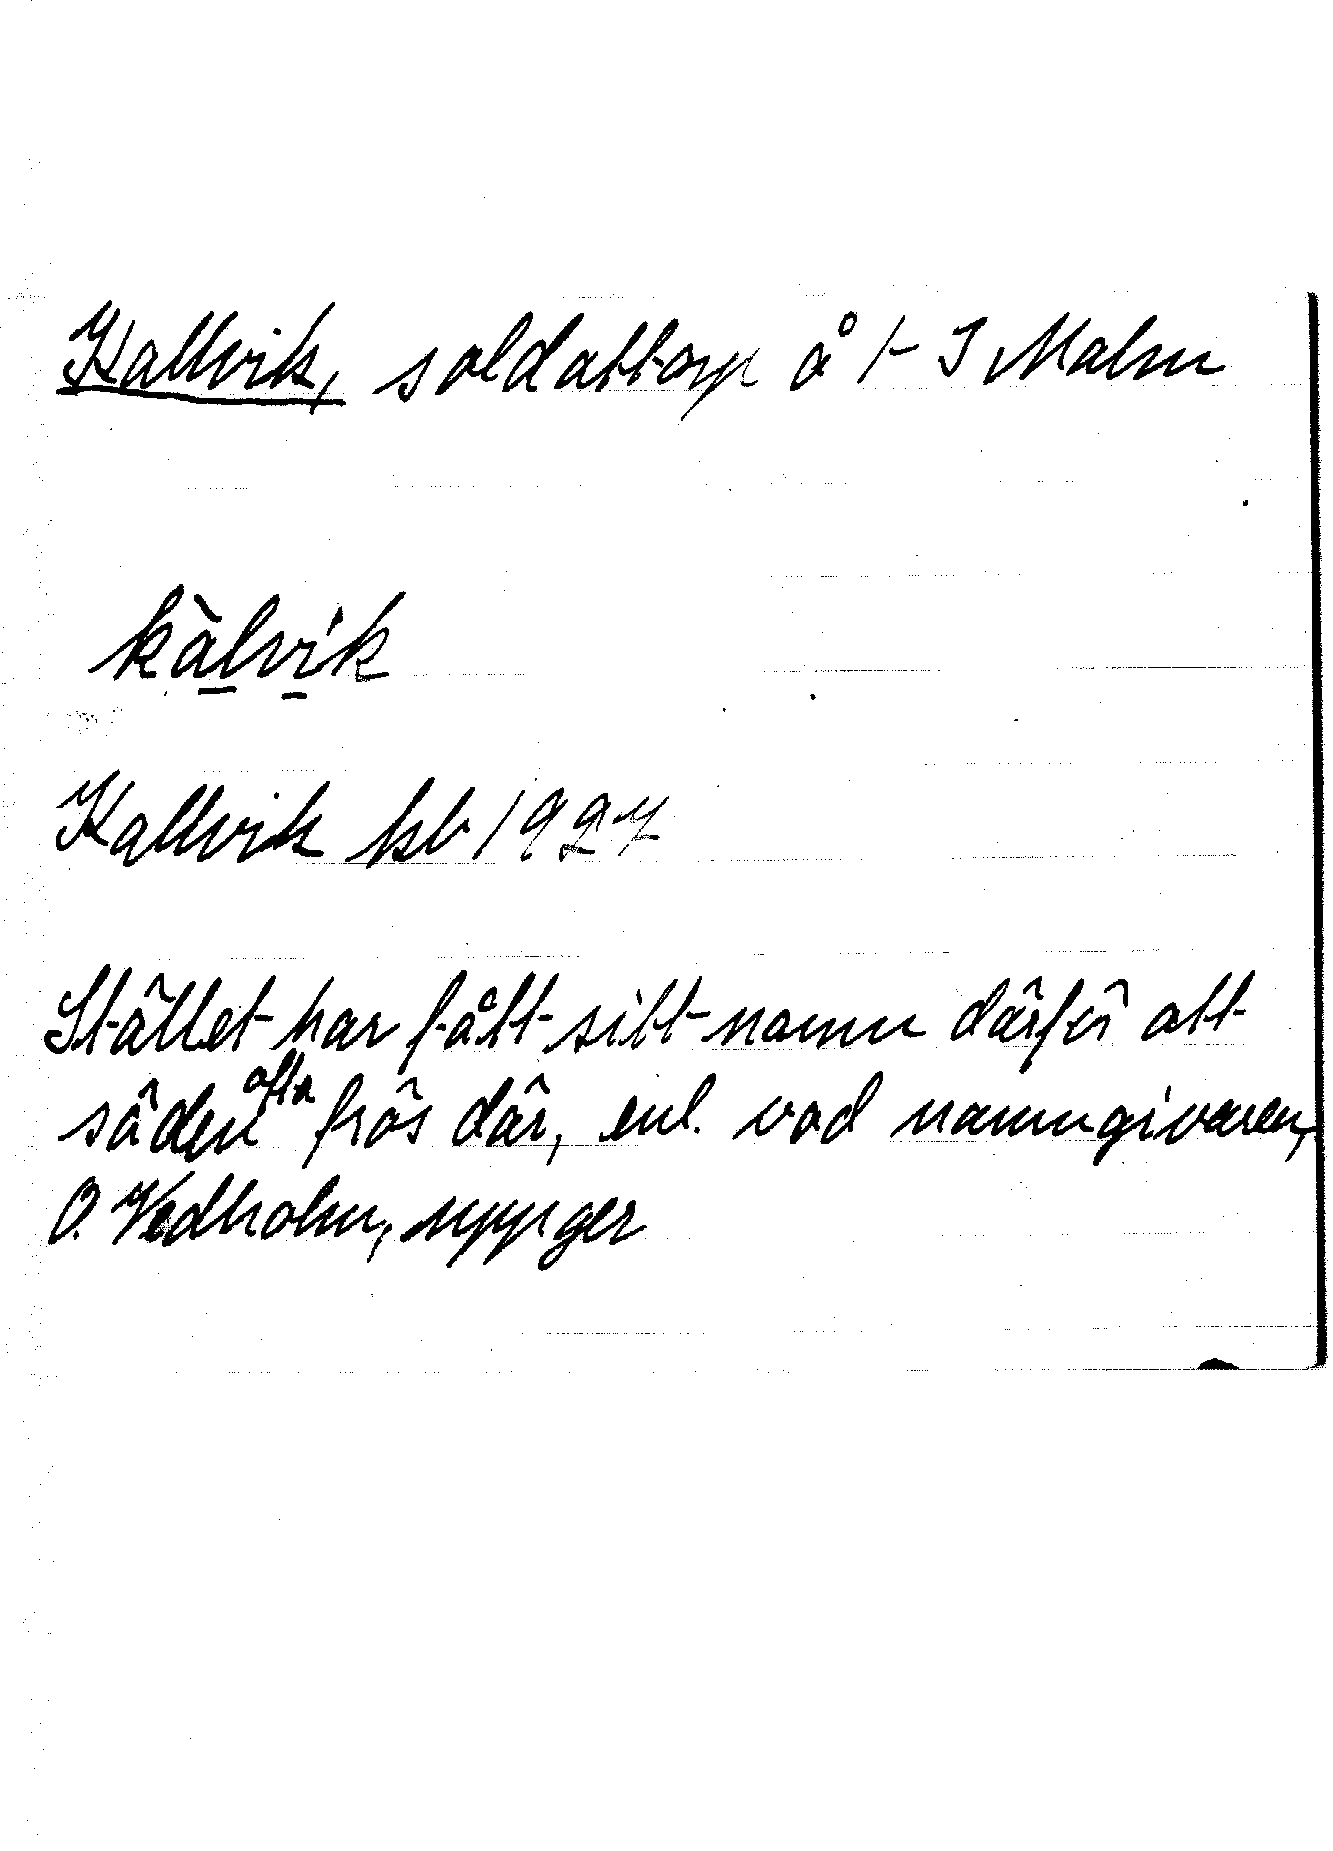 Kallvik, soldattorp å 1- I Malm
kàlvik
Kallvik kb 1927
Stället har fått sitt namn därför att
säden ofta frös där, enl. vad namngivaren,
O. Vedholm, uppger